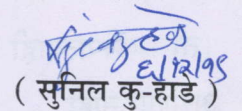 ६/१२/१९
( सुनिल कु-हाडे )